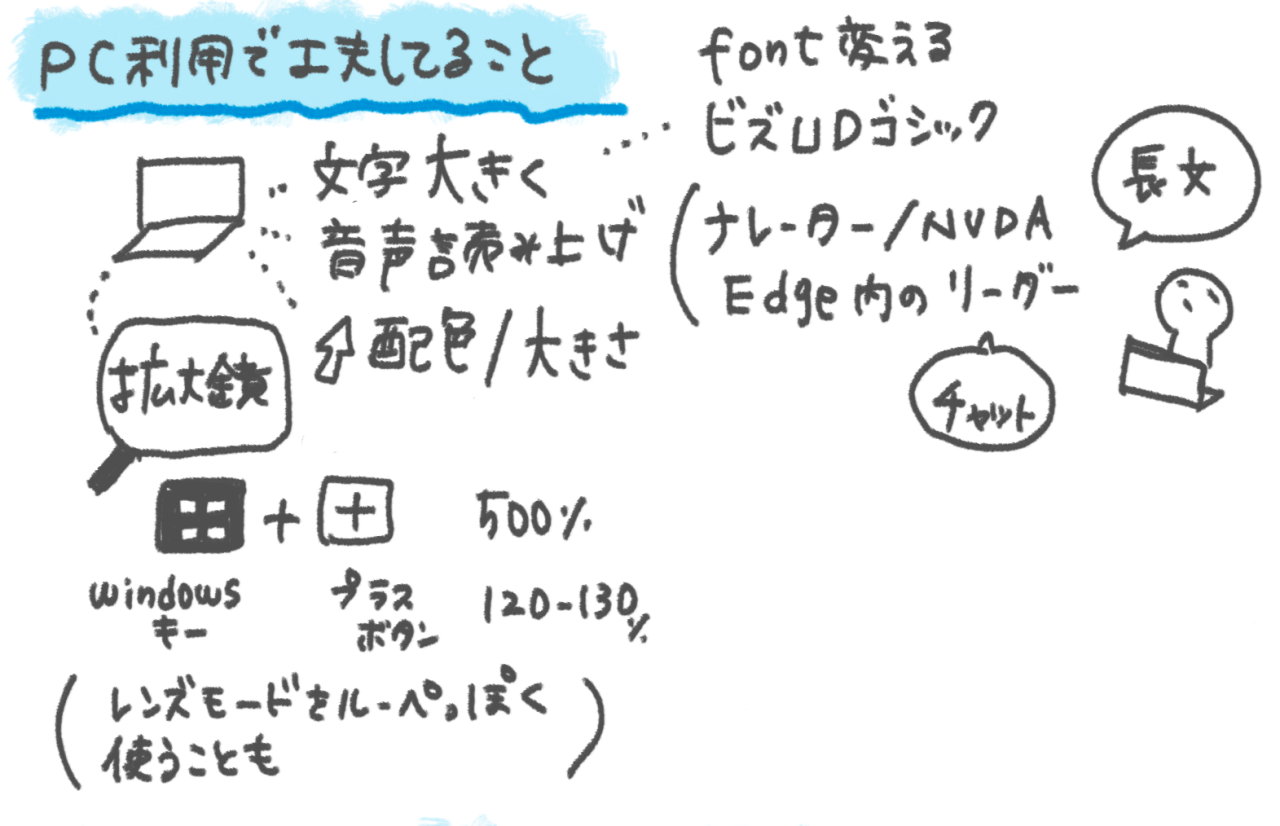 PC利用で工夫してること
文字大きく
音声読み上げ
配色/大きさ
拡大鏡
+ + 500%
windows
キー
プラス
ボタン
120-130%
(レンズモードをルーペっぽく
使うことも)
font変える
ビズUDゴシック
(ナレーター/NVDA
Edge内のリーダー
長女
チャット